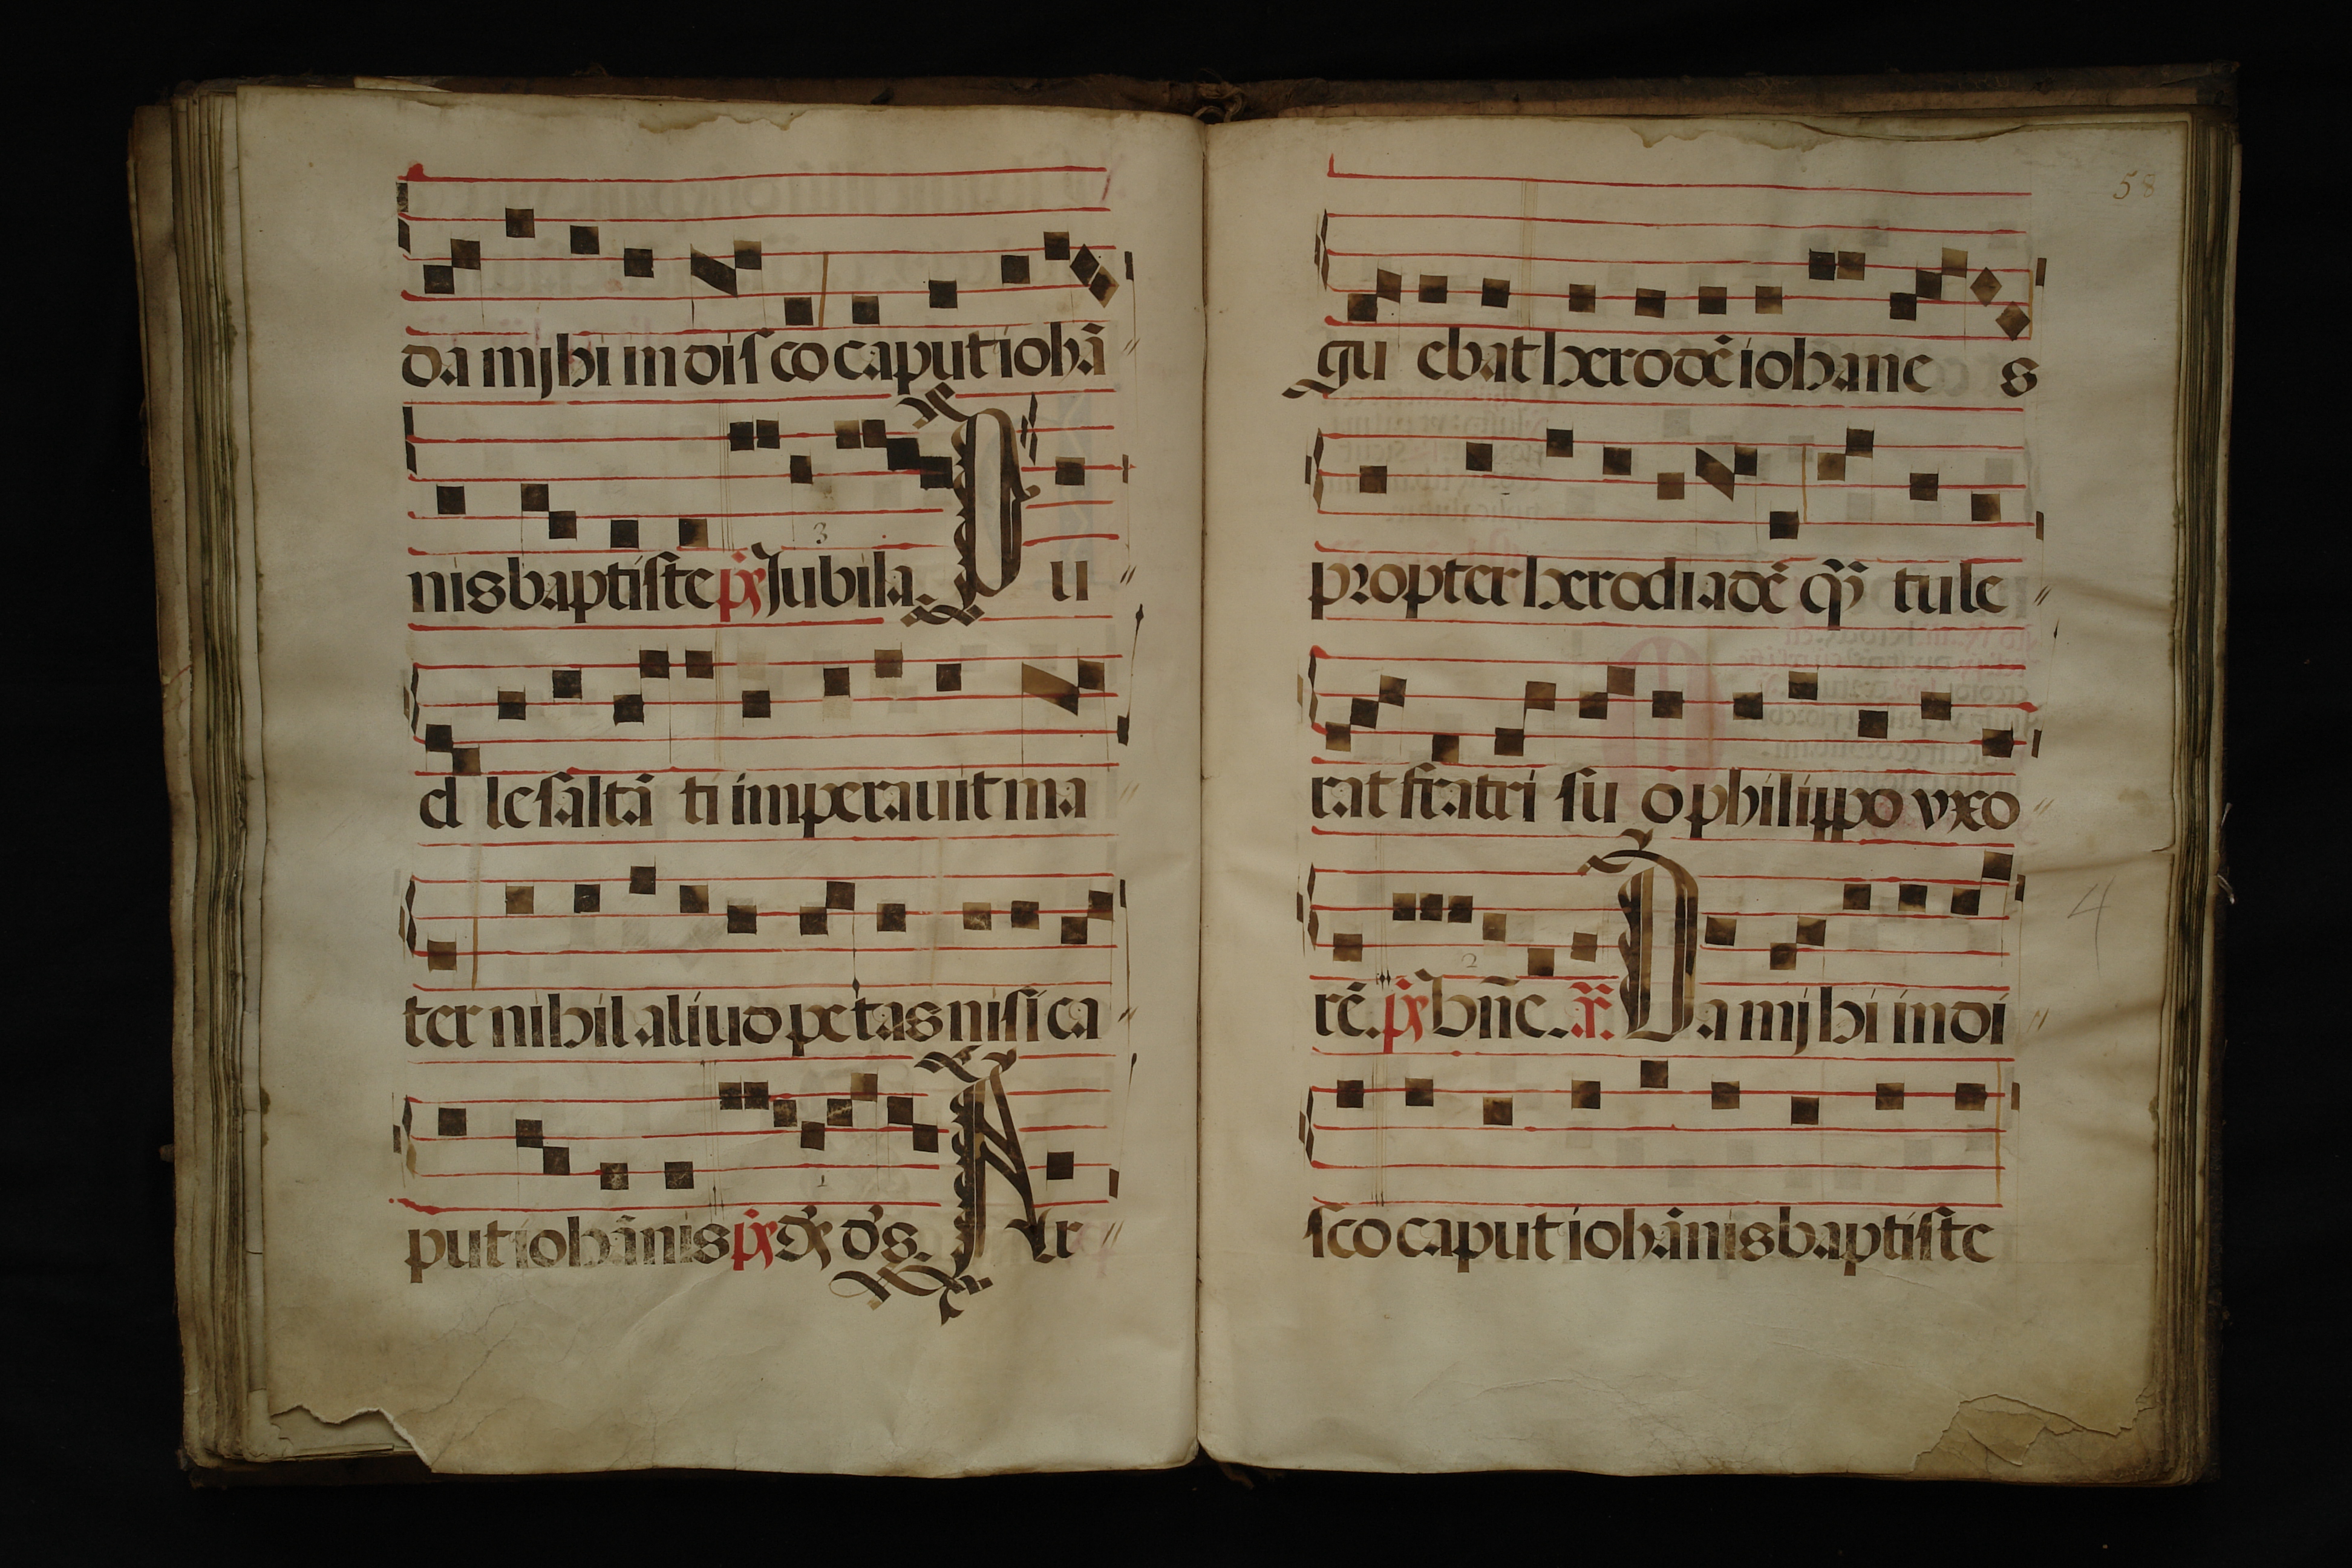 da mjhi in disco caput iohā
3
nis baptiste p̄s Jubila. Pu
el le saltā ti imperauit ma
ter nihil aliud petas nisi ca
1
put iohānis p̄s Ds ds. Ar
58
gu ebat herodē iohane s
propter herodiadē q̄ tule
rat fratri su o philippo vxo
4
2
rē. p̄s bñe. a. Da mjhi in di
sco caput iohānis baptiste